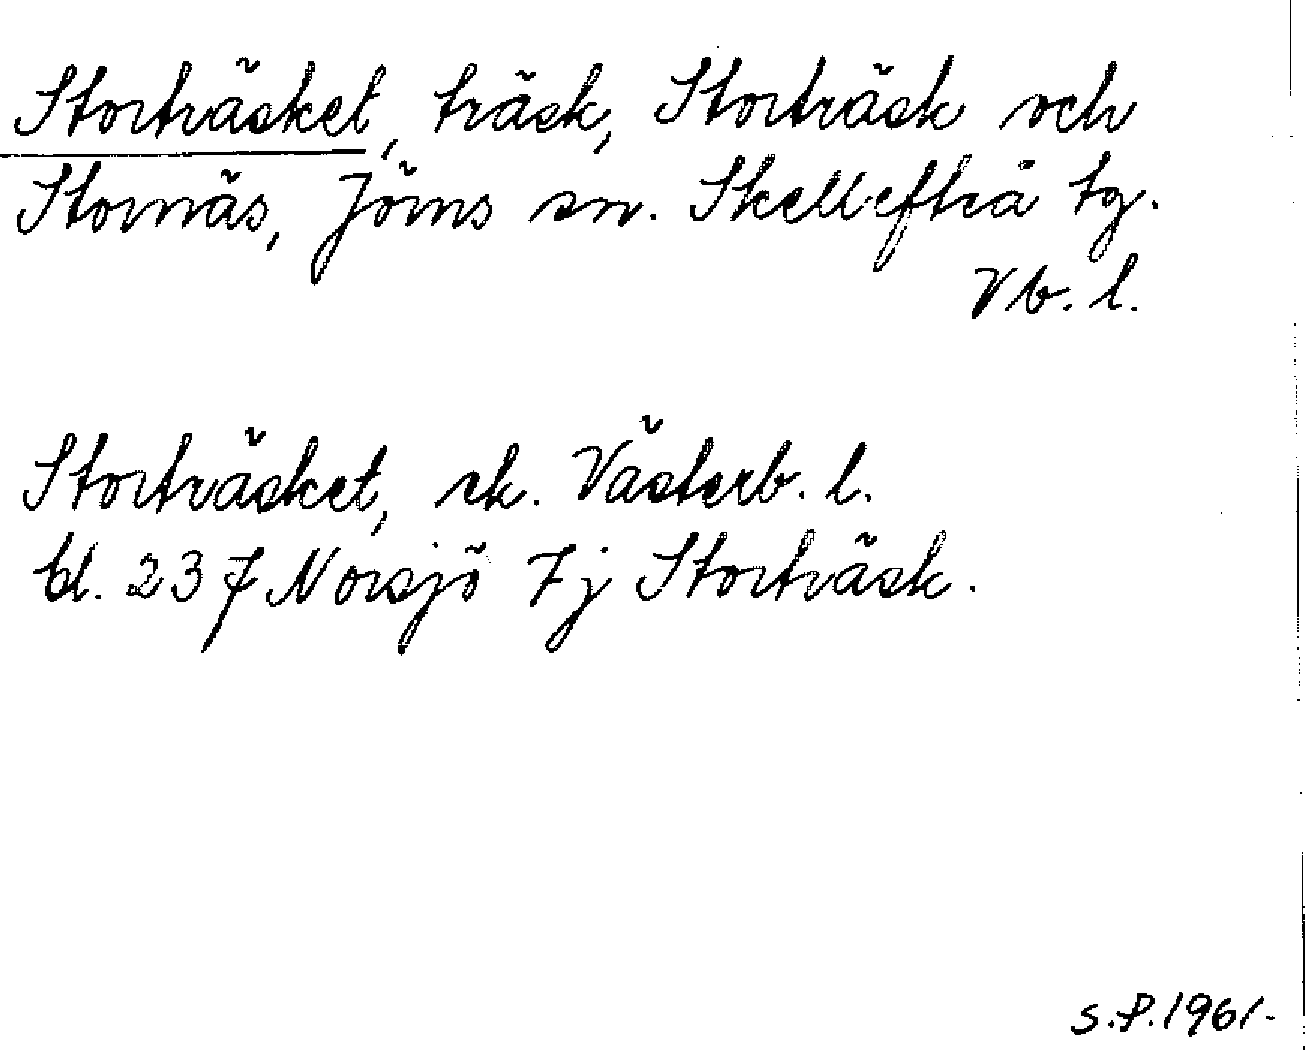 Storträsket, träsk, Storträsk och
Stornäs, Jörns sn. Skellefteå tg.
Vb. l.
Storträsket, ek. Västerb. l.
bl. 237 Norsjö 7j Storträsk.
S.P. 1961-